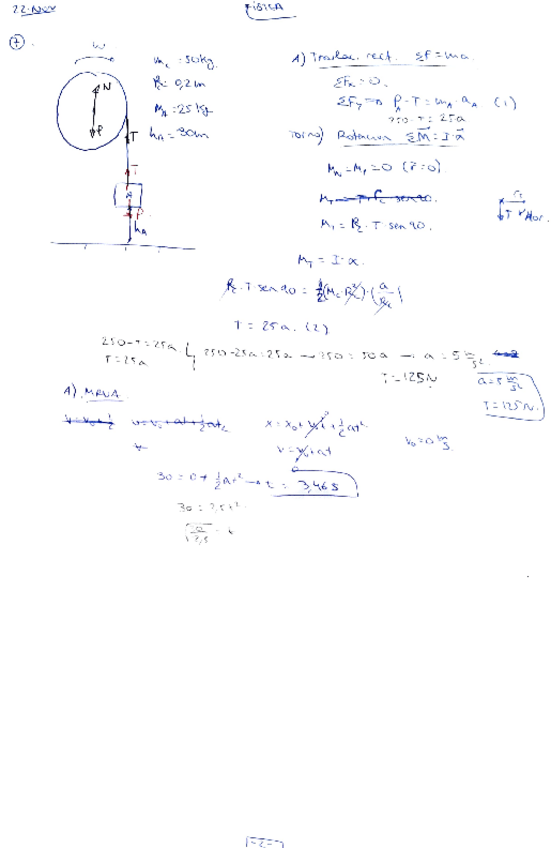 22-Nov
FÍSICA
7.
ω
m_c = 50kg.
R = 0,2m
M_A = 25kg
h_A = 30m
N
P
T
T
A
P
h_A
A) Traslac. rect. ΣF = ma.
ΣFx = 0.
ΣFy = P_A - T = m_A · a_A (1)
250 - T = 25a
Torno) Rotacion ΣM = I·α
M_N = M_P = 0 (r=0)
M_T = R_c · T · sen 90.
M_T = I·α.
R_c · T · sen 90 = 1/2 (M_c R_c²) · (a/R_c)
T = 25a. (2)
250 - T = 25a
T = 25a
250 - 25a = 25a → 250 = 50a → a = 5 m/s²
T = 125N
a = 5 m/s²
T = 125N.
A) MRUA
x = x₀ + v₀t + 1/2 at²
v = v₀ + at
v₀ = 0 m/s.
30 = 0 + 1/2 at² → t = 3,46s
30 = 2,5t²
√30/2,5 = t
-2-